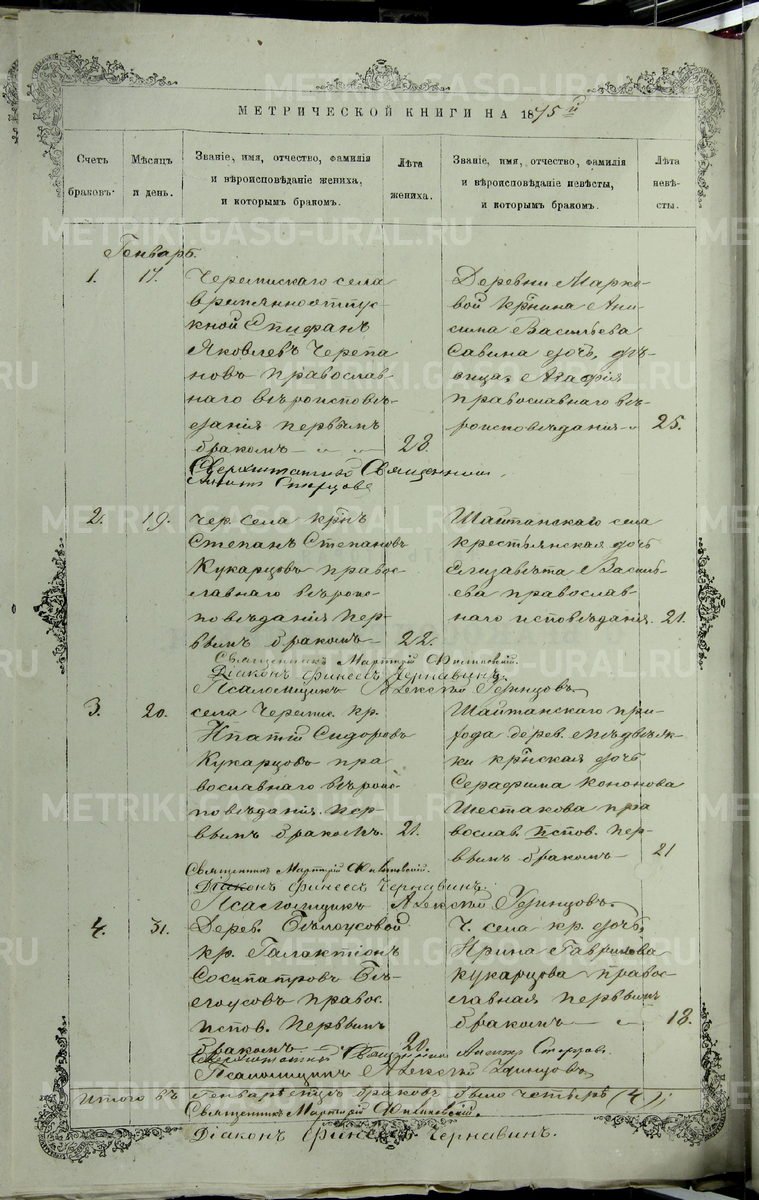 METRIKI.GASO-URAL.RU
МЕТРИЧЕСКОЙ КНИГИ НА 1875й
Счетъ браковъ.
Мѣсяцъ и день.
Званіе, имя, отчество, фамилія и вѣроисповѣданіе жениха, и которымъ бракомъ.
Лѣта жениха.
Званіе, имя, отчество, фамилія и вѣроисповѣданіе невѣсты, и которымъ бракомъ.
Лѣта невѣ-сты.
Генварь.
1. 17.
Черемискаго села
временноотпус
кной Епифанъ
Яковлевъ Черепа
новъ православ
наго вѣроисповѣ-
данія первымъ
бракомъ 28.
Деревни Марко-
вой кр̃нина Ани-
сима Васильева
Савина дочь, дѣ-
вица, Агафія
православнаго вѣ-
роисповѣданія 25.
Сверхштатный Священникъ
2. 19.
Чер. села кр̃нъ
Степанъ Степановъ
Кукарцовъ правос
лавнаго вѣроис-
повѣданія пер-
вымъ бракомъ 22.
Шайтанскаго села
крестьянская дочь
Елизавѣта Василь-
ева православ-
наго исповѣданія. 21.
Священникъ Мартирій Филиповскій.
Діаконъ Финеесъ Чернавинъ.
Псаломщикъ Алексѣй Удинцовъ
3. 20.
села Черемис. кр.
Ипатій Сидоровъ
Кукарцовъ пра
вославнаго вѣроис
повѣданія. Пер-
вымъ бракомъ. 21.
Шайтанскаго при-
хода дерев. Медвѣж-
ки кр̃нская дочь
Серафима Кононова
Шестакова пра
вослав. испов. пер-
вымъ бракомъ 21
Священникъ Мартирій Филиповскій.
Діаконъ Финеесъ Чернавинъ.
Псаломщикъ Алексѣй Удинцовъ.
4. 31.
Дерев. Бѣлоусовой
кр. Галактіонъ
Сосипатровъ Бѣ-
лоусовъ правос.
испов. первымъ
бракомъ 20.
Ч. села кр. дочь
Ирина Гаврилова
Кукарцова правос-
лавная первымъ
бракомъ 18.
Сверхштатный Священникъ
Псаломщикъ Алексѣй Удинцовъ
Итого въ Генварѣ мцѣ браковъ было четыре (4);
Священникъ Мартирій Филиповскій.
Діаконъ Финеесъ Чернавинъ.